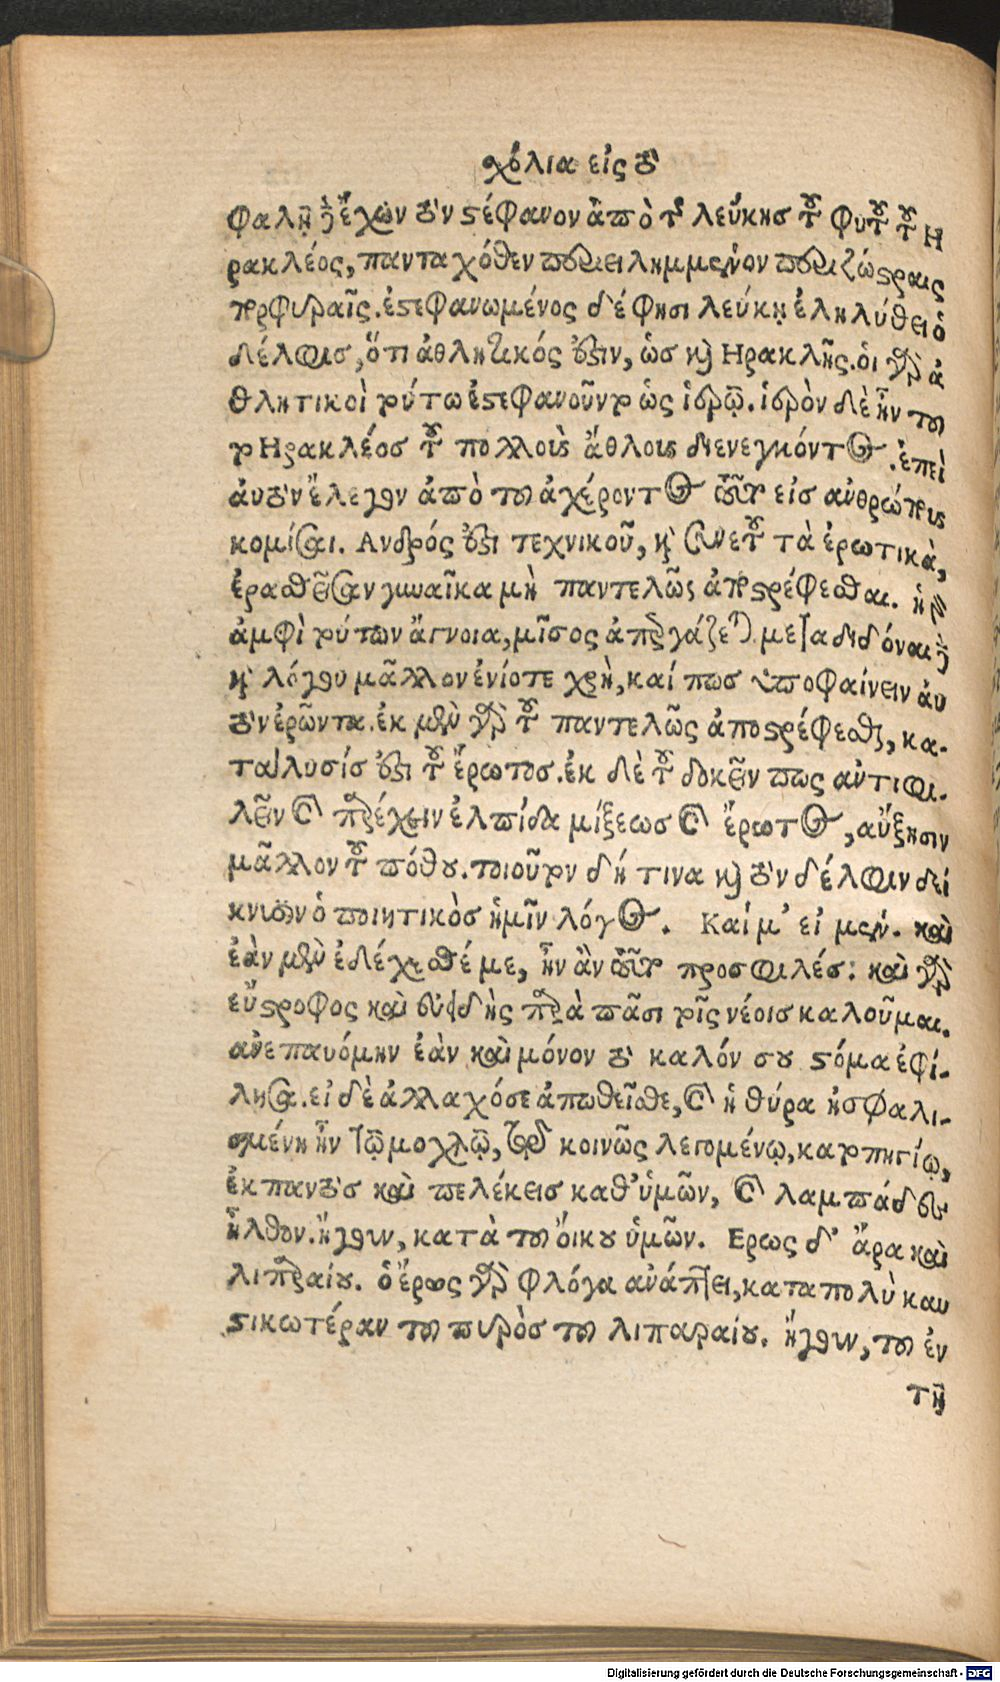 χόλια εἰς τὸ
φαλῇ ἔχων τὸν στέφανον ἀπὸ τῆς λεύκης τοῦ φυτοῦ τοῦ Η
ρακλέος, πανταχόθεν περιειλημμένον περιζώστραις
πορφυραῖς. ἐστεφανωμένος δέ φησι λεύκῃ ἐληλύθει ὁ
δέλφις, ὅτι ἀθλητικός ἐστιν, ὡς καὶ Ηρακλῆς. οἱ γὰρ ἀ
θλητικοὶ τούτω ἐστεφανοῦντο ὡς ἱερῷ. ἱερὸν δὲ ἦν του
το Ηρακλέος τοῦ πολλοὺς ἄθλους διενεγκόντος. ἐπεὶ
αὐτὸν ἔλεγον ἀπὸ του ἀχέροντος εἰς ἀνθρώπους
κομίσαι. Ανδρός ἐστι τεχνικοῦ, καὶ συνετοῦ τὰ ἐρωτικὰ,
ἐρασθεῖσαν γυναῖκα μὴ παντελῶς ἀποστρέφεσθαι. ἡ γὰρ
ἀμφὶ τούτων ἄγνοια, μῖσος ἀπεργάζεται. μεταδιδόναι δὲ
καὶ λόγου μᾶλλον ἐνίοτε χρὴ, καί πως ὑποφαίνειν αὐ
τὸν ἐρῶντα. ἐκ μὲν γὰρ τοῦ παντελῶς ἀποστρέφεσθαι, κα-
τάλυσίς ἐστι τοῦ ἔρωτος. ἐκ δὲ τοῦ δοκεῖν πως ἀντιφι-
λεῖν καὶ παρέχειν ἐλπίδα μίξεως καὶ ἔρωτος, αὔξησιν
μᾶλλον τοῦ πόθου. τοιοῦτον δή τινα καὶ τὸν δέλφιν δεί
κνυσιν ὁ ποιητικὸς ἡμῖν λόγος. Καί μ' εἰ μέν. καὶ
ἐὰν μὲν ἐδέχεσθέ με, ἦν ἂν προσφιλές: καὶ γὰρ
εὔστροφος καὶ εὐειδὴς παρὰ πᾶσι τοῖς νέοις καλοῦμαι.
ἀνεπαυόμην ἐὰν καὶ μόνον τὸ καλόν σου στόμα ἐφί-
λησα. εἰ δὲ ἀλλαχόσε ἀπωθεῖσθε, καὶ ἡ θύρα ἠσφαλι-
σμένη ἦν τῷ μοχλῷ, τῷ κοινῶς λεγομένῳ, κατπηγίῳ,
ἐκ παντὸς καὶ πελέκεις καθ' ὑμῶν, καὶ λαμπάδες
ἦλθον. ἤγουν, κατὰ του οἴκου ὑμῶν. Ερως δ' ἄρα καὶ
λιπαραίου. ὁ ἔρως γὰρ φλόγα ἀνάπτει, καταπολὺ καυ
στικωτέραν του πυρὸς του λιπαραίου. ἤγουν, του ἐν
τῇ
Digitalisierung gefördert durch die Deutsche Forschungsgemeinschaft - DFG